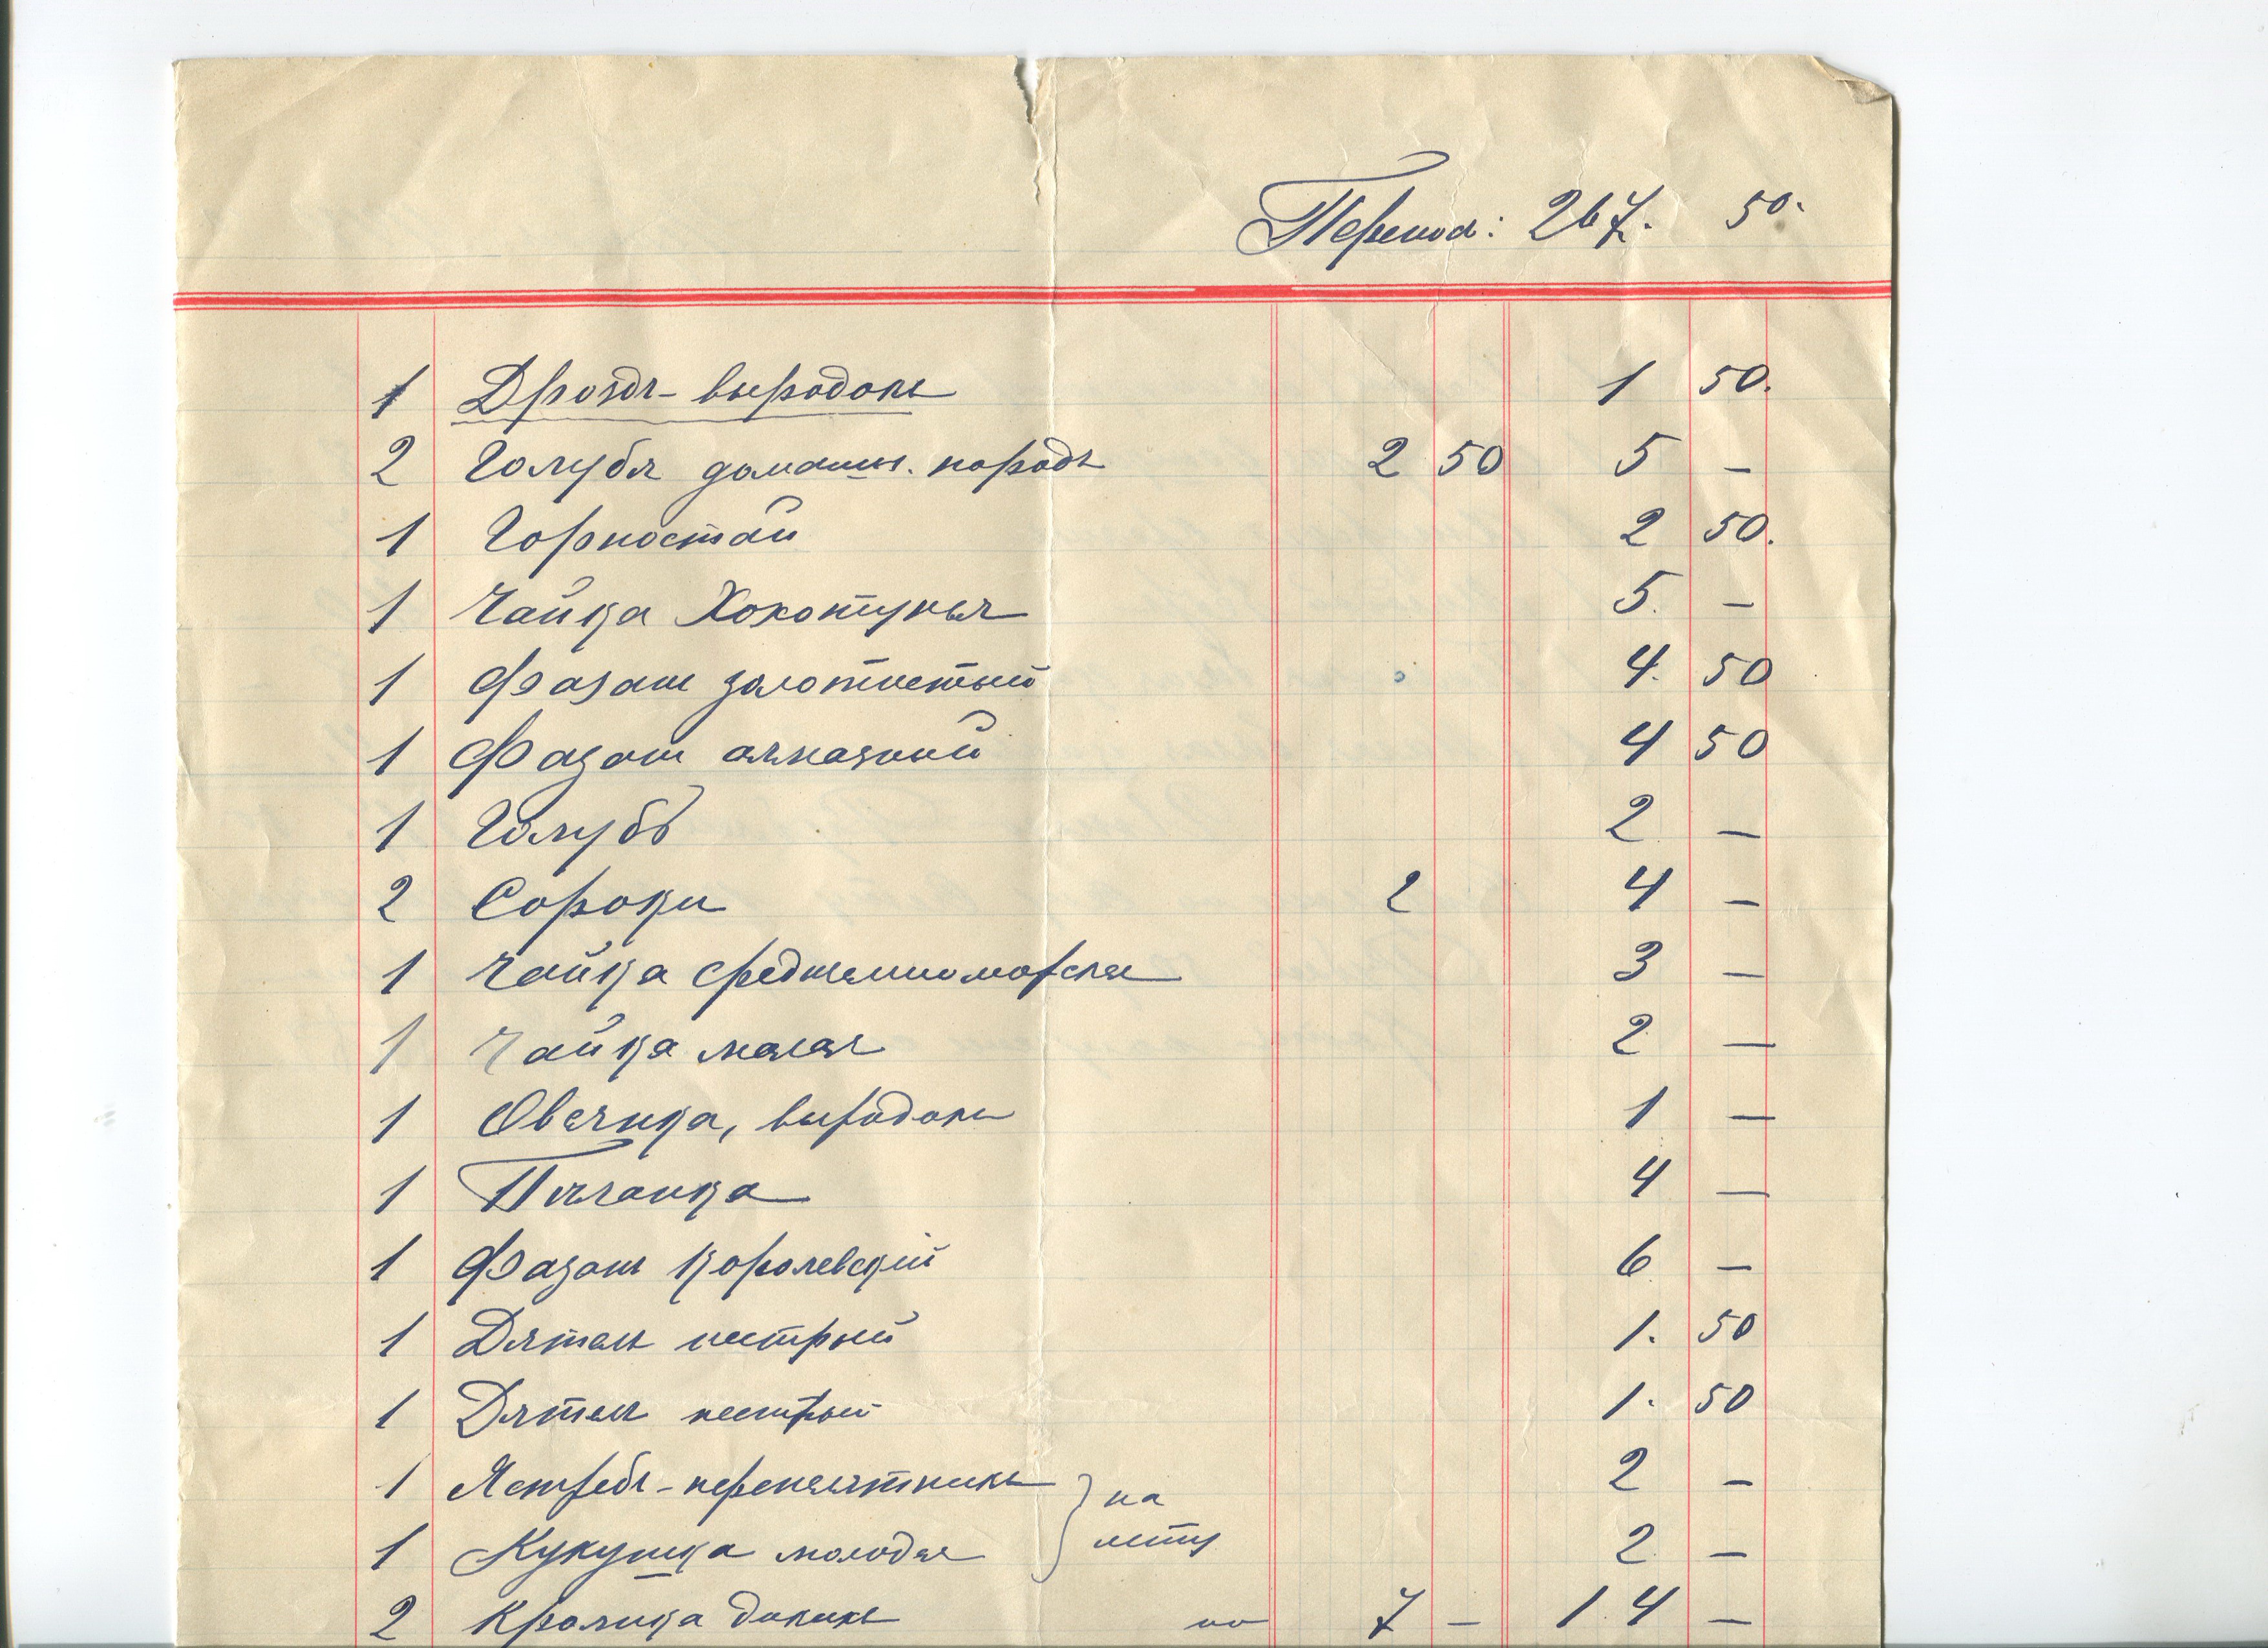 Перенос: 267. 50.
1 Дроздъ-выродокъ 1 50.
2 Голубя домашн. породъ 2 50 5 —
1 Горностай 2 50.
1 Чайка Хохотунья 5. —
1 Фазанъ золотистый 4. 50
1 Фазанъ алмазный 4 50
1 Голубь 2 —
2 Сороки 2 4 —
1 Чайка средиземноморская 3 —
1 Чайка малая 2 —
1 Овсянка, выродокъ 1 —
1 Поганка 4 —
1 Фазанъ Королевскій 6 —
1 Дятелъ пестрый 1. 50
1 Дятелъ пестрый 1. 50
1 Ястребъ-перепелятникъ 2 —
на
1 Кукушка молодая 2 —
лету
2 Кролика дикихъ по 7 — 14 —